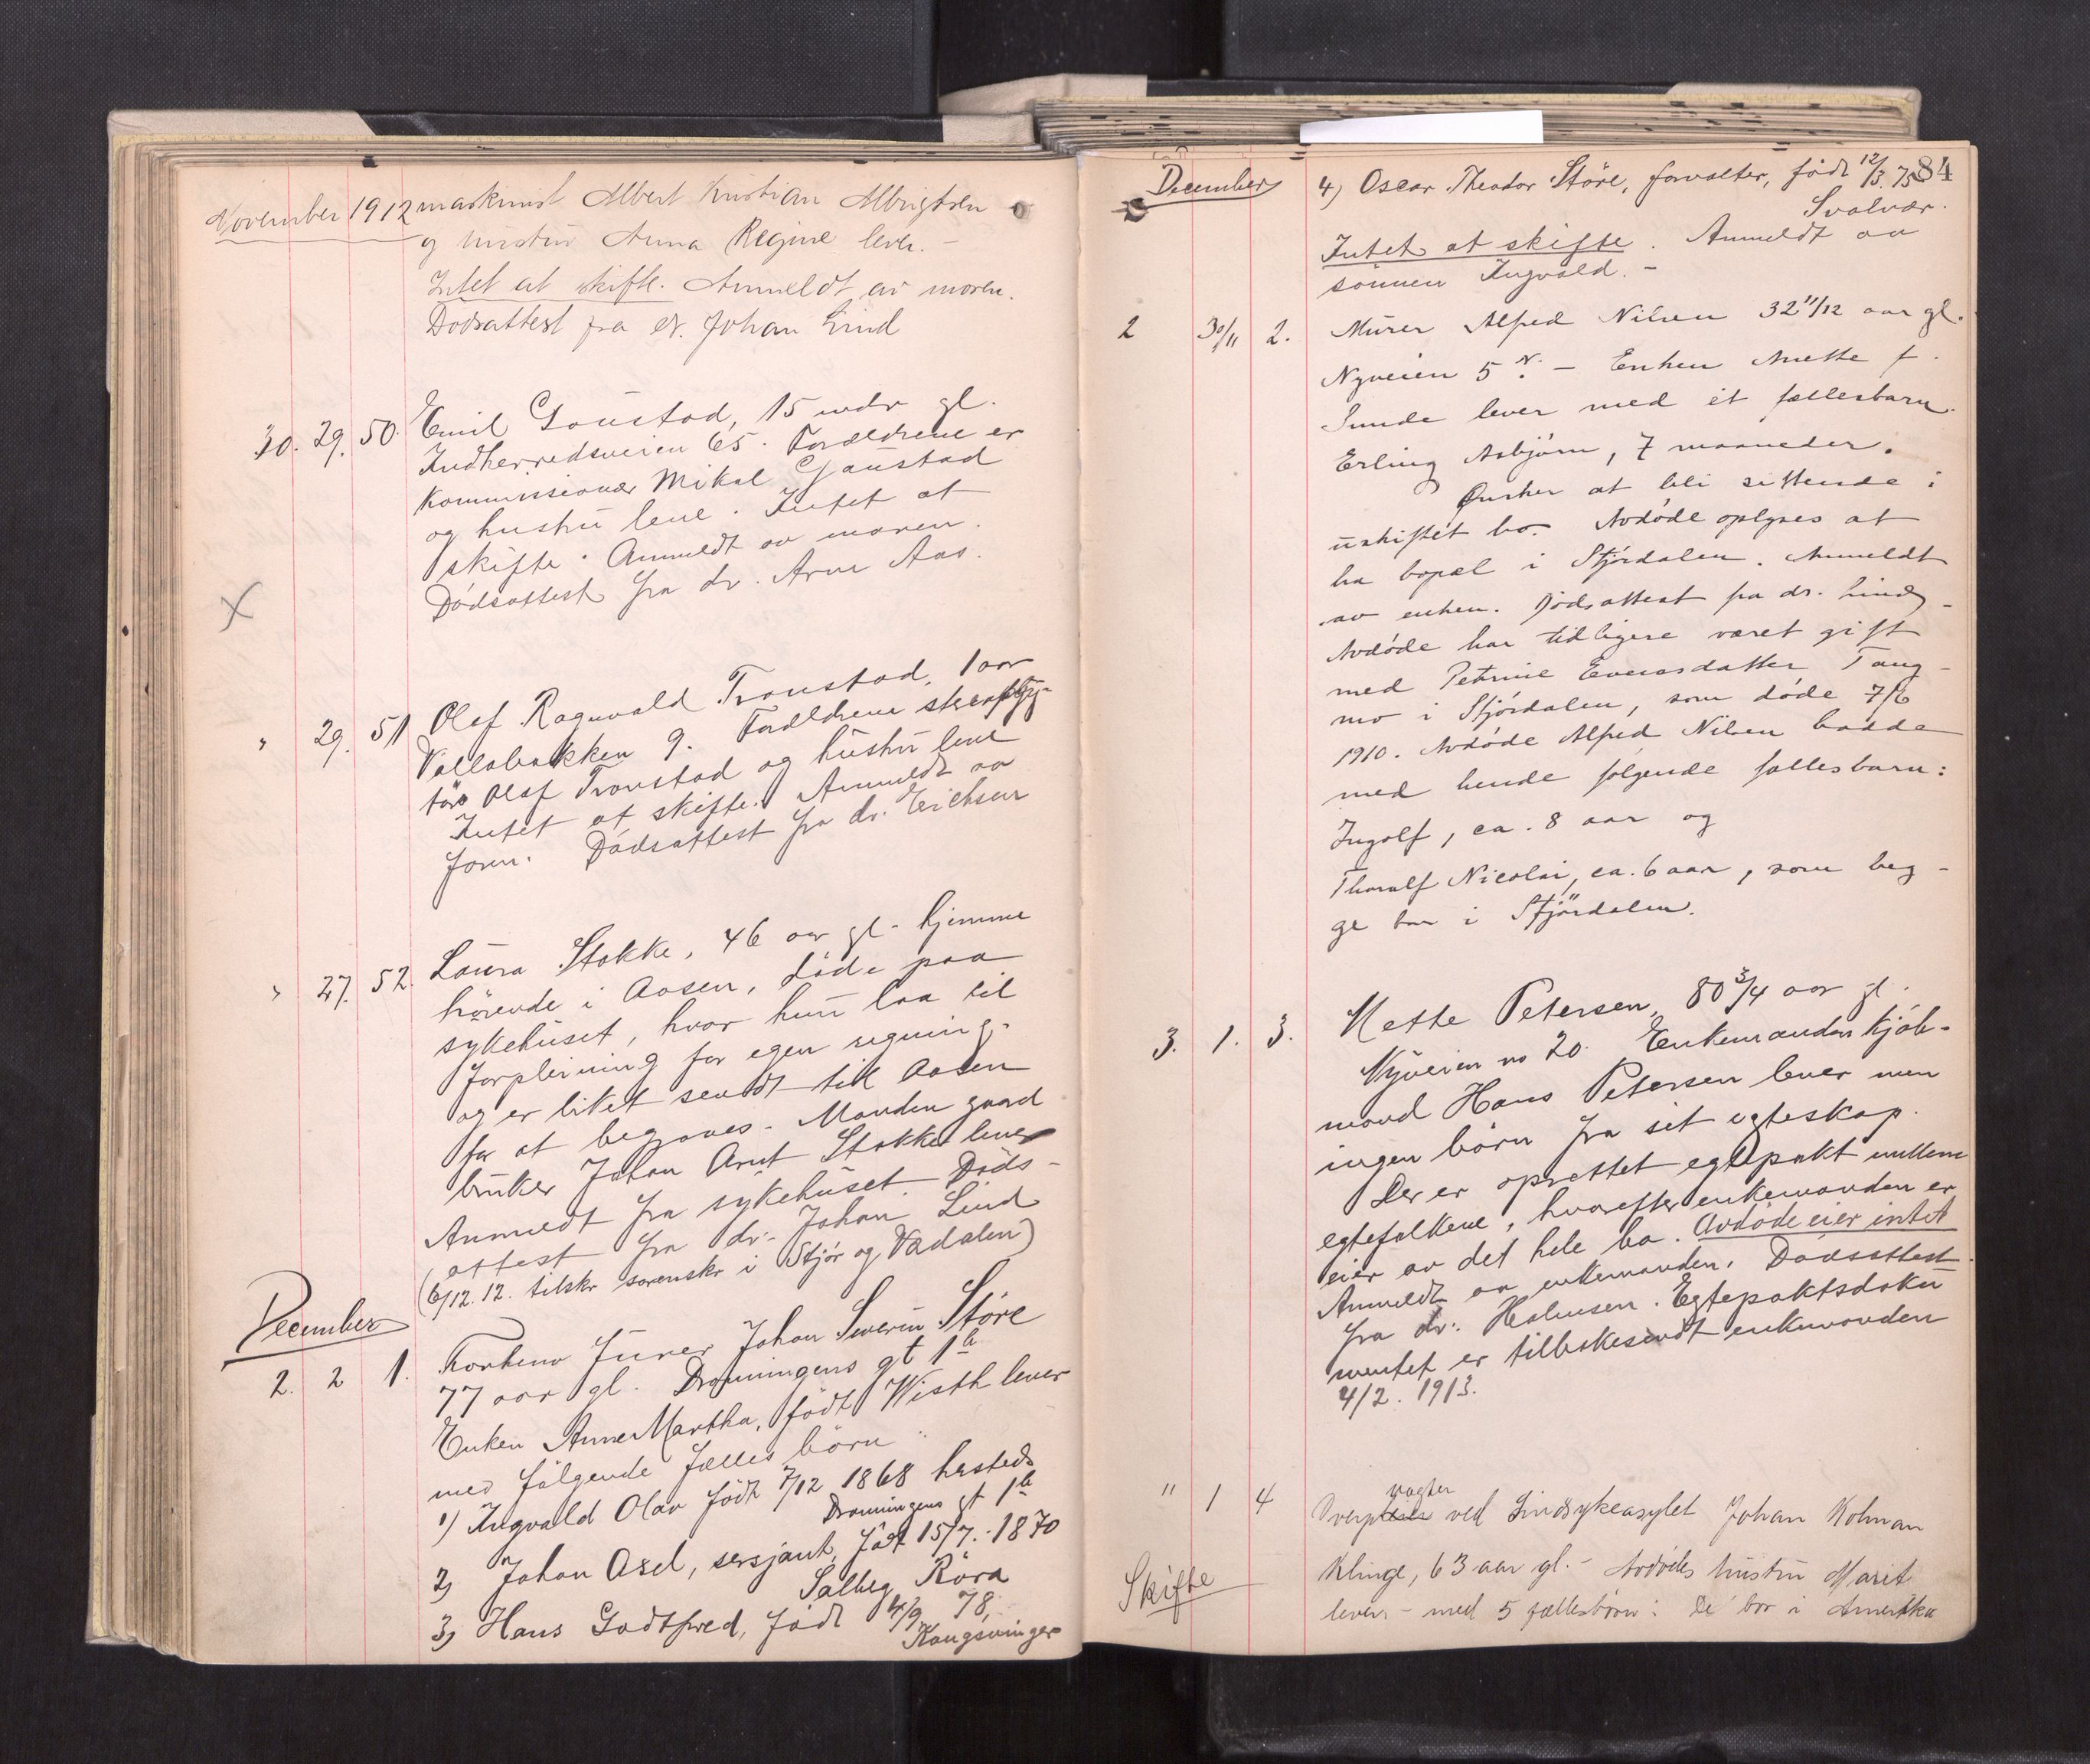 November 1912 maskinist Albert Kristian Albrigtsen
og hustru Anna Regine lever. -
Intet at skifte. Anmeldt av moren.
Dødsattest fra dr. Johan Lind
30. 29. 50. Emil Gaustad, 15 mdr gl.
Indherredsveien 65. Forældrene er
Kommissionær Mikal Gaustad
og hustru leve. Intet at
skifte. Anmeldt av moren.
Dødsattest fra dr. Arne Aas.
X
" 29. 51 Olaf Ragnvald Tronstad, 1 aar
Vollabakken 9. Forældrene
Olaf Tronstad og hustru leve
Intet at skifte. Anmeldt av
faren. Dødsattest fra dr. Erichsen
" 27. 52. Laura Stokke, 46 aar gl. hjemme
hørende i Aasen, døde paa
sykehuset, hvor hun laa til
forpleining for egen regning.
og er liket sendt til Aasen
for at begraves. Manden gaard
bruker Johan Arnt Stokke lever
Anmeldt fra sykehuset. Døds-
attest fra dr. Johan Lind
(6/12. 12. tilskr sorenskr i Stjør og Værdalen)
December
2. 2 1. Johan Severin Støre
77 aar gl. Dronningens gt 1b
Enken Anne Martha, født Wisth lever
med følgende fælles børn:
1) Ingvald Olav født 7/12 1868 hersteds
Dronningens gt 1b
2) Johan Axel, sersjant, født 15/7. 1870
Salbeg Røra
3) Hans Godtfred, født 4/9 78,
Kongsvinger
December
84
4) Oscar Theodor Støre, forvalter, født 12/3. 75
Svolvær.
Intet at skifte. Anmeldt av
sønnen Ingvald. -
2 30/11 2. Murer Alfred Nilsen 32 11/12 aar gl.
Nyveien 5 - Enken Anette f.
Sunde lever med et fællesbarn
Erling Asbjørn, 7 maaneder.
Ønsker at bli sittende i
uskiftet bo. Avdøde oplyses at
ha bopæl i Stjørdalen. Anmeldt
av enken. Dødsattest fra dr. Lind -
Avdøde har tidligere været gift
med Petrine Evensdatter Tang-
mo i Stjørdalen, som døde 7/6
1910. Avdøde Alfred Nilsen hadde
med hende følgende fællesbarn:
Ingolf, ca. 8 aar og
Thoralf Nicolai, ca. 6 aar, som beg-
ge bor i Stjørdalen.
3. 1. 3. Mette Petersen, 80 3/4 aar gl.
Nyveien no 20. Enkemanden kjøb-
mand Hans Petersen lever men
ingen børn fra sit egteskap.
Der er oprettet egtepakt mellem
egtefolkene, hvorefter enkemanden er
eier av det hele bo. Avdøde eier intet
Anmeldt av enkemanden. Dødsattest
fra dr. Holmsen. Egtepaktsdoku
mentet er tilbakesendt enkemanden
4/2. 1913.
" 1 4 vagter
ved Sindsykeasylet Johan Kolman
Klinge, 63 aar gl. - Avdødes hustru Marit
Skifte
lever - med 5 fællesbørn: De bor i Amerika